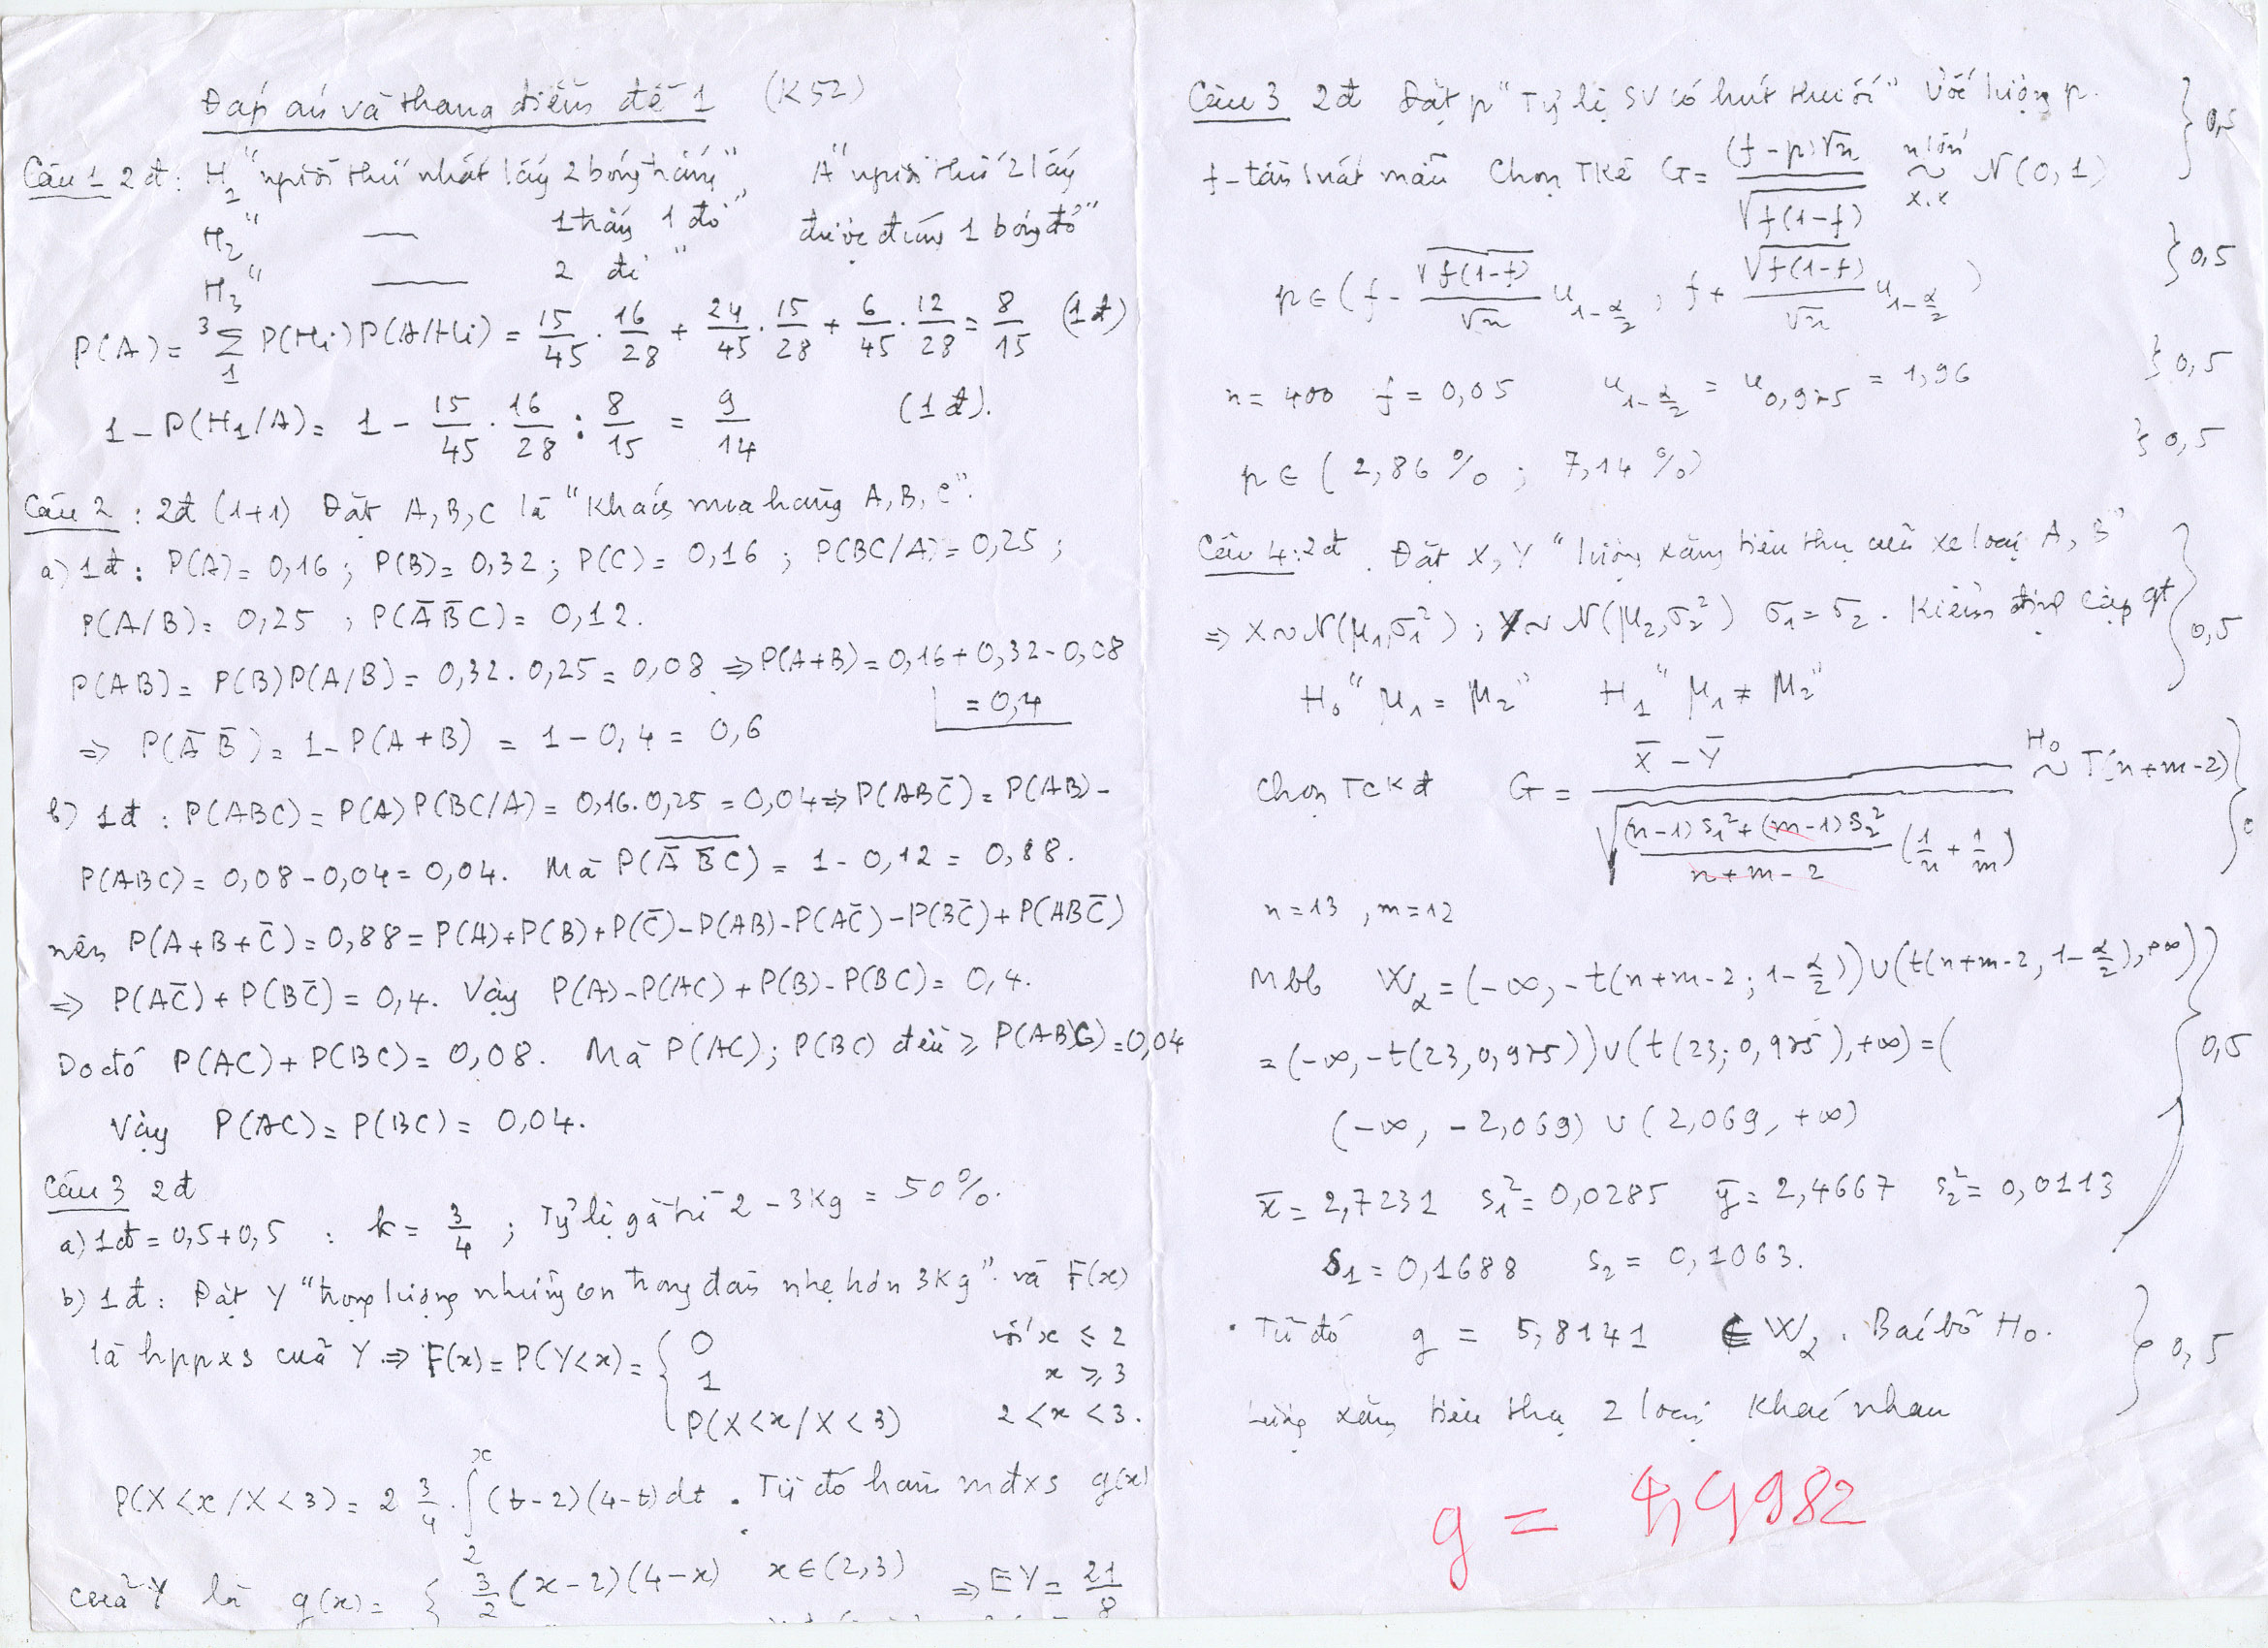 Đáp án và thang điểm đề 1 (K52)
Câu 1 2đ: H₂ "người thứ nhất lấy 2 bóng trắng", A "người thứ 2 lấy
H₂ " — 1 trắng 1 đỏ", được đúng 1 bóng đỏ"
H₃ " — 2 đỏ"
P(A) = ³Σ₁ P(Hi)P(A/Hi) = 15/45 . 16/28 + 24/45 . 15/28 + 6/45 . 12/28 = 8/15 (1đ)
1 - P(H₁/A) = 1 - 15/45 . 16/28 : 8/15 = 9/14 (1đ).
Câu 2 : 2đ (1+1) Đặt A, B, C là "Khách mua hàng A, B, C".
a) 1đ : P(A) = 0,16 ; P(B) = 0,32 ; P(C) = 0,16 ; P(BC/A) = 0,25 ;
P(A/B) = 0,25 ; P(A̅ B̅ C) = 0,12.
P(AB) = P(B)P(A/B) = 0,32 . 0,25 = 0,08 ⇒ P(A+B) = 0,16 + 0,32 - 0,08
= 0,4
⇒ P(A̅ B̅) = 1 - P(A+B) = 1 - 0,4 = 0,6
b) 1đ : P(ABC) = P(A)P(BC/A) = 0,16.0,25 = 0,04 ⇒ P(ABC̅) = P(AB) -
P(ABC) = 0,08 - 0,04 = 0,04. Mà P(\overline{A̅ B̅ C}) = 1 - 0,12 = 0,88.
nên P(A+B+C̅) = 0,88 = P(A)+P(B)+P(C̅)-P(AB)-P(AC̅)-P(BC̅)+P(ABC̅)
⇒ P(AC̅) + P(BC̅) = 0,4. Vậy P(A)-P(AC)+P(B)-P(BC) = 0,4.
Do đó P(AC)+P(BC) = 0,08. Mà P(AC); P(BC) đều ≥ P(ABC) = 0,04
Vậy P(AC) = P(BC) = 0,04.
Câu 3 2đ
a) 1đ = 0,5+0,5 : k = 3/4 ; Tỷ lệ gà từ 2 - 3Kg = 50%.
b) 1đ : Đặt Y "trọng lượng những con trong đàn nhẹ hơn 3Kg" và F(x)
là hppxs của Y ⇒ F(x) = P(Y<x) = { 0 với x ≤ 2
1 x ≥ 3
P(X<x/X<3) 2 < x < 3.
P(X<x/X<3) = 2 3/4 . ∫₂ˣ (t-2)(4-t)dt . Từ đó hàm mđxs g(x)
của Y là g(x) = { 3/2 (x-2)(4-x) x ∈ (2,3) ⇒ EY = 21/8
Câu 3 2đ Đặt p "Tỷ lệ SV có hút thuốc" Ước lượng p. } 0,5
f - tần suất mẫu Chọn TKê G = (f-p)√n / √f(1-f) n lớn ~ x.x N(0,1)
p ∈ (f - √f(1-f)/√n u_{1-α/2} ; f + √f(1-f)/√n u_{1-α/2}) } 0,5
n = 400 f = 0,05 u_{1-α/2} = u_{0,975} = 1,96 } 0,5
p ∈ (2,86% ; 7,14%) } 0,5
Câu 4 : 2đ . Đặt X, Y "lượng xăng tiêu thụ của xe loại A, B"
⇒ X ~ N(μ₁,σ₁²) ; Y ~ N(μ₂,σ₂²) σ₁ = σ₂ . Kiểm định cặp gt } 0,5
H₀ "μ₁ = μ₂" H₁ "μ₁ ≠ μ₂"
Chọn TCKđ G = (X̅ - Y̅) / √( ((n-1)S₁² + (m-1)S₂²)/(n+m-2) (1/n + 1/m) ) H₀ ~ T(n+m-2)
n = 13 , m = 12
Mbb W_α = (-∞, -t(n+m-2; 1-α/2)) ∪ (t(n+m-2, 1-α/2), +∞)
= (-∞, -t(23, 0,975)) ∪ (t(23; 0,975), +∞) = ( } 0,5
(-∞, -2,069) ∪ (2,069, +∞)
x̅ = 2,7231 s₁² = 0,0285 y̅ = 2,4667 s₂² = 0,0113
s₁ = 0,1688 s₂ = 0,1063.
Từ đó g = 5,8141 ∈ W_α . Bác bỏ H₀.
Lượng xăng tiêu thụ 2 loại khác nhau } 0,5
g = 4,4982